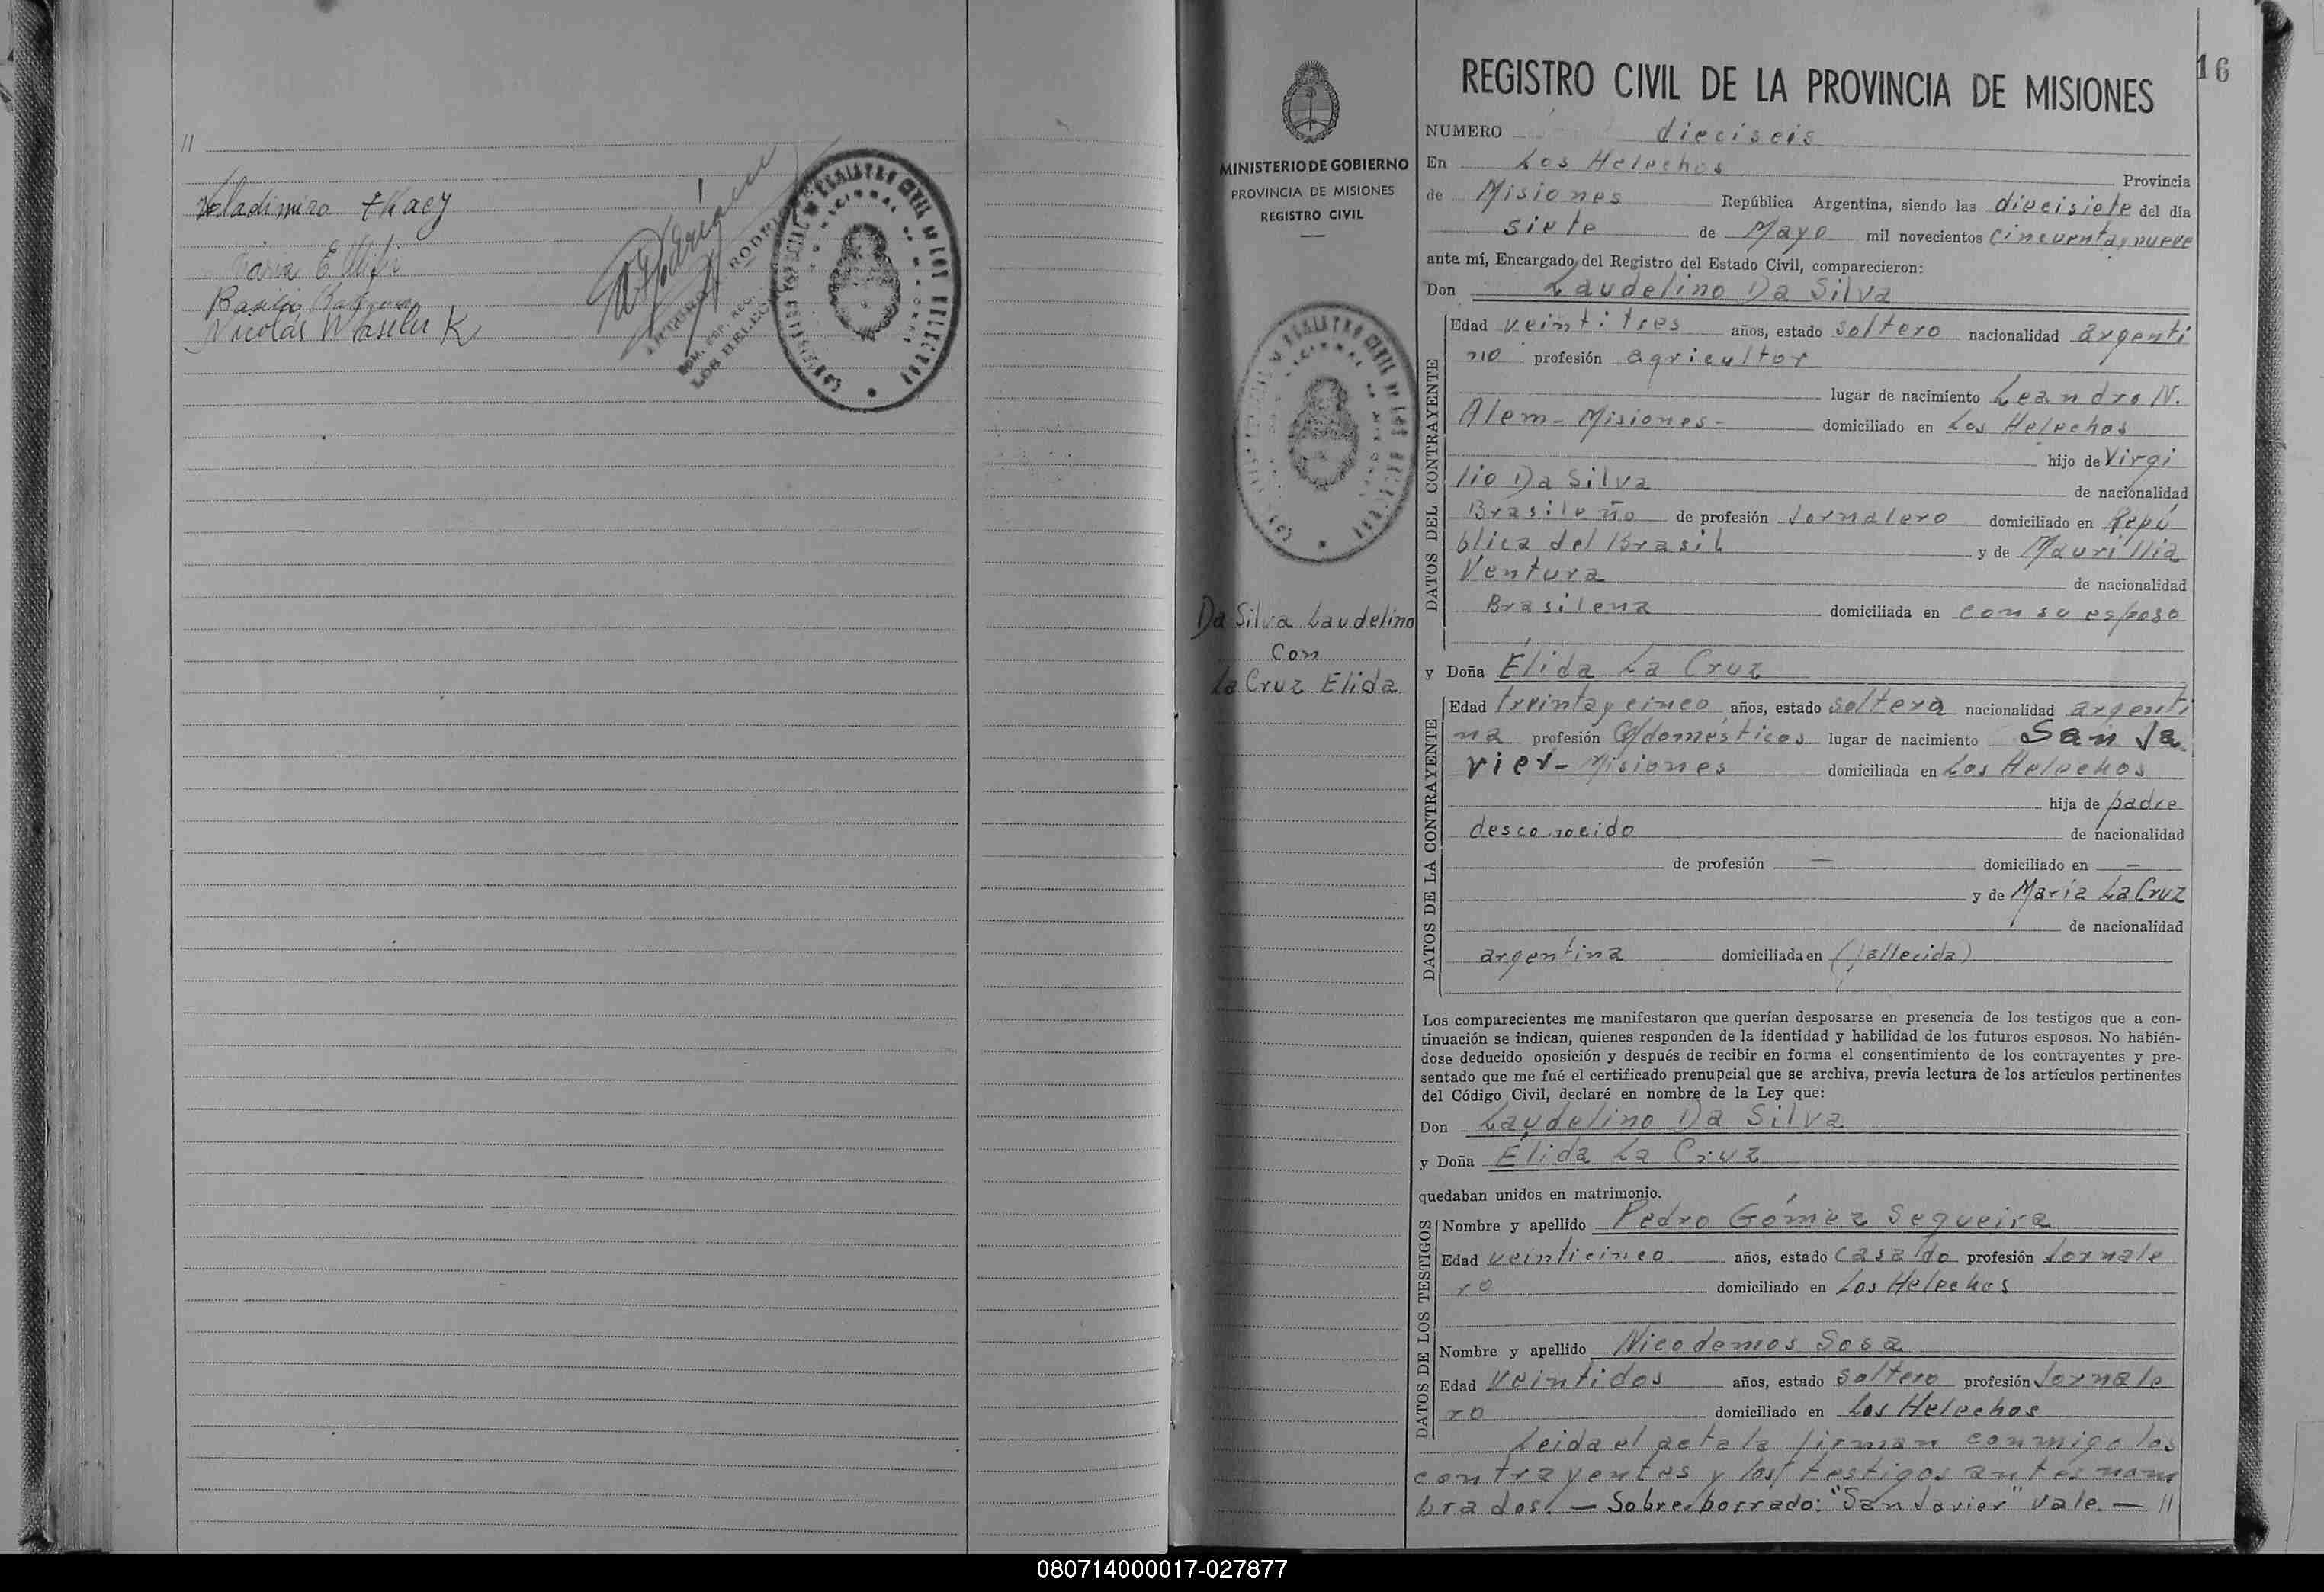 //
Vladimiro tkacy
Nicolás Wasiluk
REGISTRO CIVIL
LOS HELECHOS
16
MINISTERIO DE GOBIERNO
PROVINCIA DE MISIONES
REGISTRO CIVIL
Da Silva Laudelino
Con
La Cruz Elida
REGISTRO CIVIL DE LA PROVINCIA DE MISIONES
NUMERO dieciseis
En Los Helechos Provincia
de Misiones República Argentina, siendo las diecisiete del día
siete de Mayo mil novecientos cincuenta y nueve
ante mí, Encargado del Registro del Estado Civil, comparecieron:
Don Laudelino Da Silva
DATOS DEL CONTRAYENTE
Edad veintitres años, estado soltero nacionalidad argenti
no profesión agricultor
lugar de nacimiento Leandro N.
Alem - Misiones - domiciliado en Los Helechos
hijo de Virgi
lio Da Silva de nacionalidad
Brasileño de profesión Jornalero domiciliado en Repú
blica del Brasil y de Maurillia
Ventura de nacionalidad
Brasilena domiciliada en con su esposo
y Doña Élida La Cruz
DATOS DE LA CONTRAYENTE
Edad treinta y cinco años, estado soltera nacionalidad argenti
na profesión Q/domésticos lugar de nacimiento San Ja
vier - Misiones domiciliada en Los Helechos
hija de padre
desconocido de nacionalidad
de profesión — domiciliado en —
y de María La Cruz
de nacionalidad
argentina domiciliada en (fallecida)
Los comparecientes me manifestaron que querían desposarse en presencia de los testigos que a con-
tinuación se indican, quienes responden de la identidad y habilidad de los futuros esposos. No habién-
dose deducido oposición y después de recibir en forma el consentimiento de los contrayentes y pre-
sentado que me fué el certificado prenupcial que se archiva, previa lectura de los artículos pertinentes
del Código Civil, declaré en nombre de la Ley que:
Don Laudelino Da Silva
y Doña Élida La Cruz
quedaban unidos en matrimonio.
DATOS DE LOS TESTIGOS
Nombre y apellido Pedro Gómez Sequeira
Edad veinticinco años, estado casado profesión Jornale
ro domiciliado en Los Helechos
Nombre y apellido Nicodemos Sosa
Edad Veintidos años, estado soltero profesión Jornale
ro domiciliado en Los Helechos
Leida el acta la firman conmigo los
contrayentes y los testigos antes nom
brados. — Sobreborrado: "San Javier" vale. — //
080714000017-027877